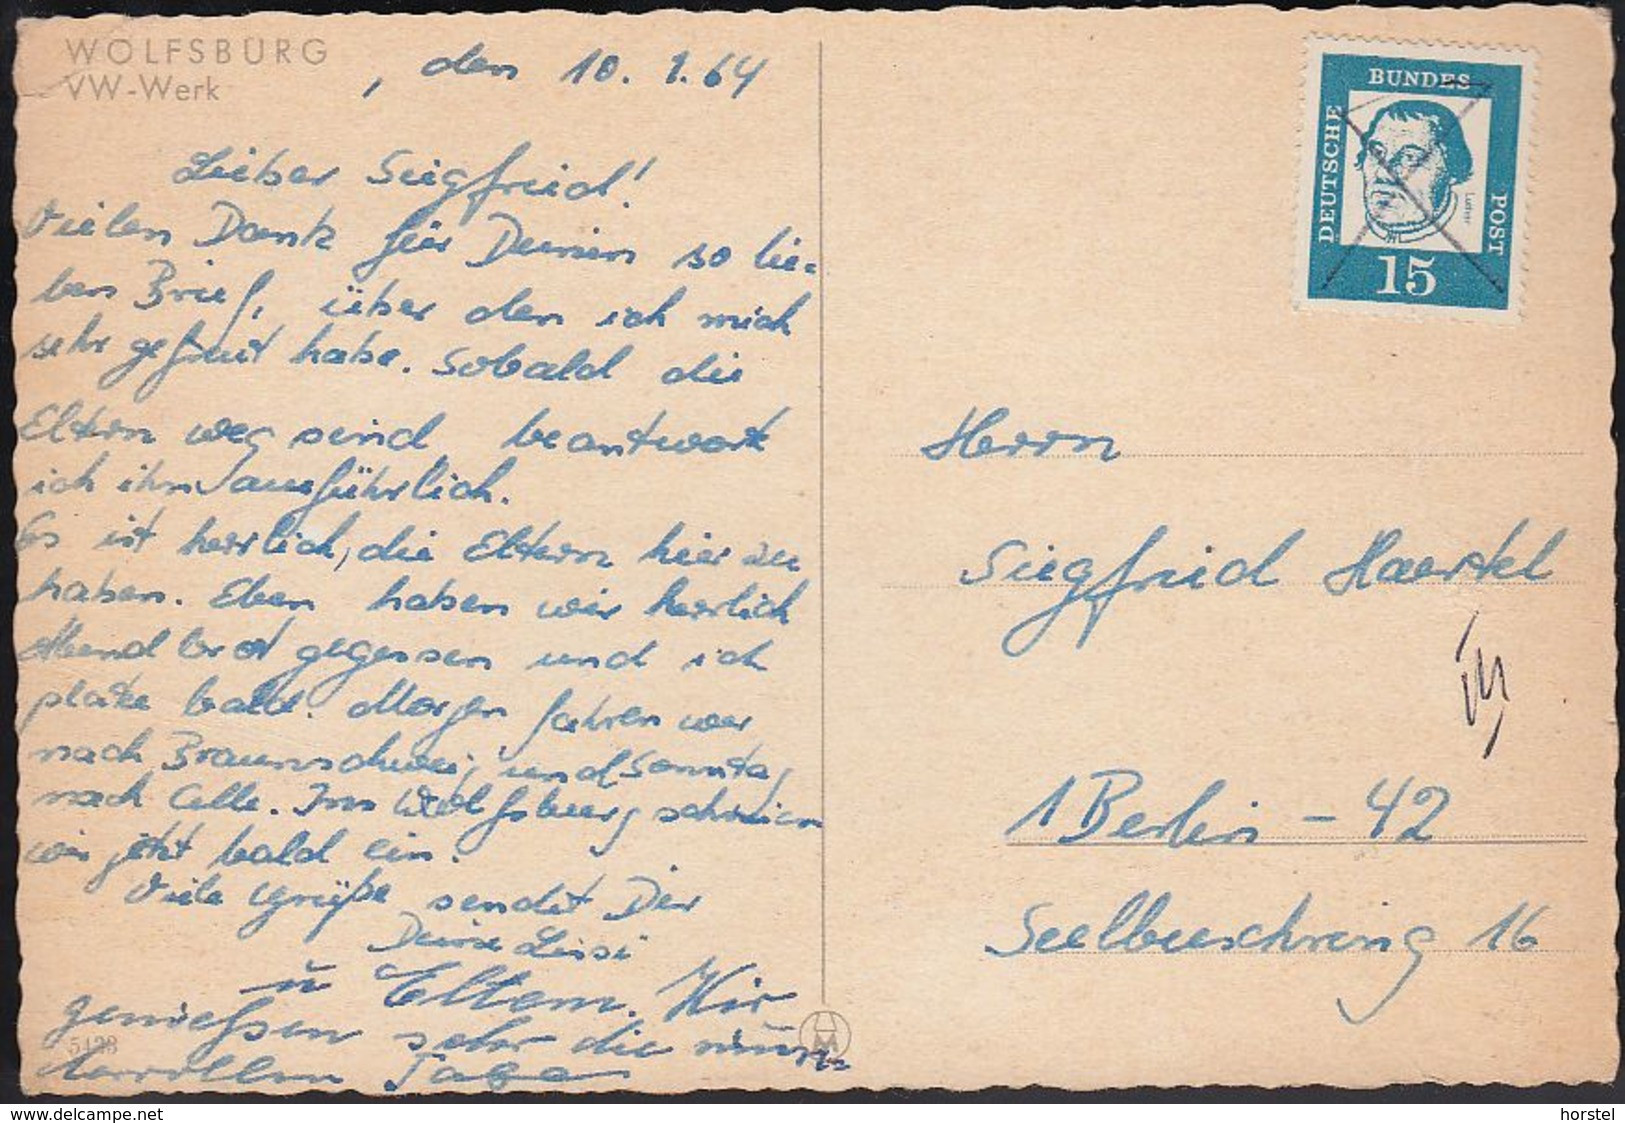 WOLFSBURG
VW-Werk
, den 10.1.64
Lieber Siegfried!
Vielen Dank für Deinen so lie-
ben Brief, über den ich mich
sehr gefreut habe. Sobald die
Eltern weg sind beantworte
ich ihn ausführlich.
Es ist herrlich, die Eltern hier zu
haben. Eben haben wir herrlich
Abendbrot gegessen und ich
platze bald. Morgen fahren wir
nach Braunschweig und Sonntag
nach Celle. In Wolfsburg schneien
wir jetzt bald ein.
Viele Grüße sendet Dir
Deine Lissi
u Eltern. Wir
genießen sehr die
Tage
5123
DEUTSCHE
BUNDES
POST
Luther
15
Herrn
Siegfried Haertel
1 Berlin - 42
Seelbuschring 16
horstel
www.delcampe.net